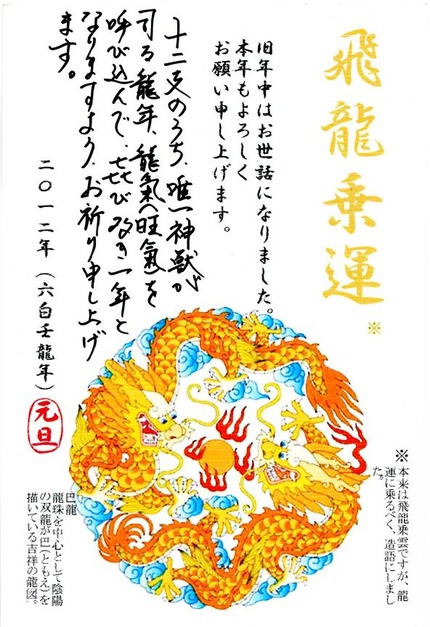 飛龍乗運
※
旧年中はお世話になりました。
本年もよろしく
お願い申し上げます。
十二支のうち、唯一神獣が
司る龍年、龍氣(旺氣)を
呼び込んで、㐂び多き一年と
なりますよう、お祈り申し上げ
ます。
二〇一二年(六白壬龍年)
元旦
※本来は飛龍乗雲ですが、龍
運に乗るべく、造語にしまし
た。
巴龍
龍珠を中心として陰陽
の双龍が巴(ともえ)を
描いている吉祥の龍図。